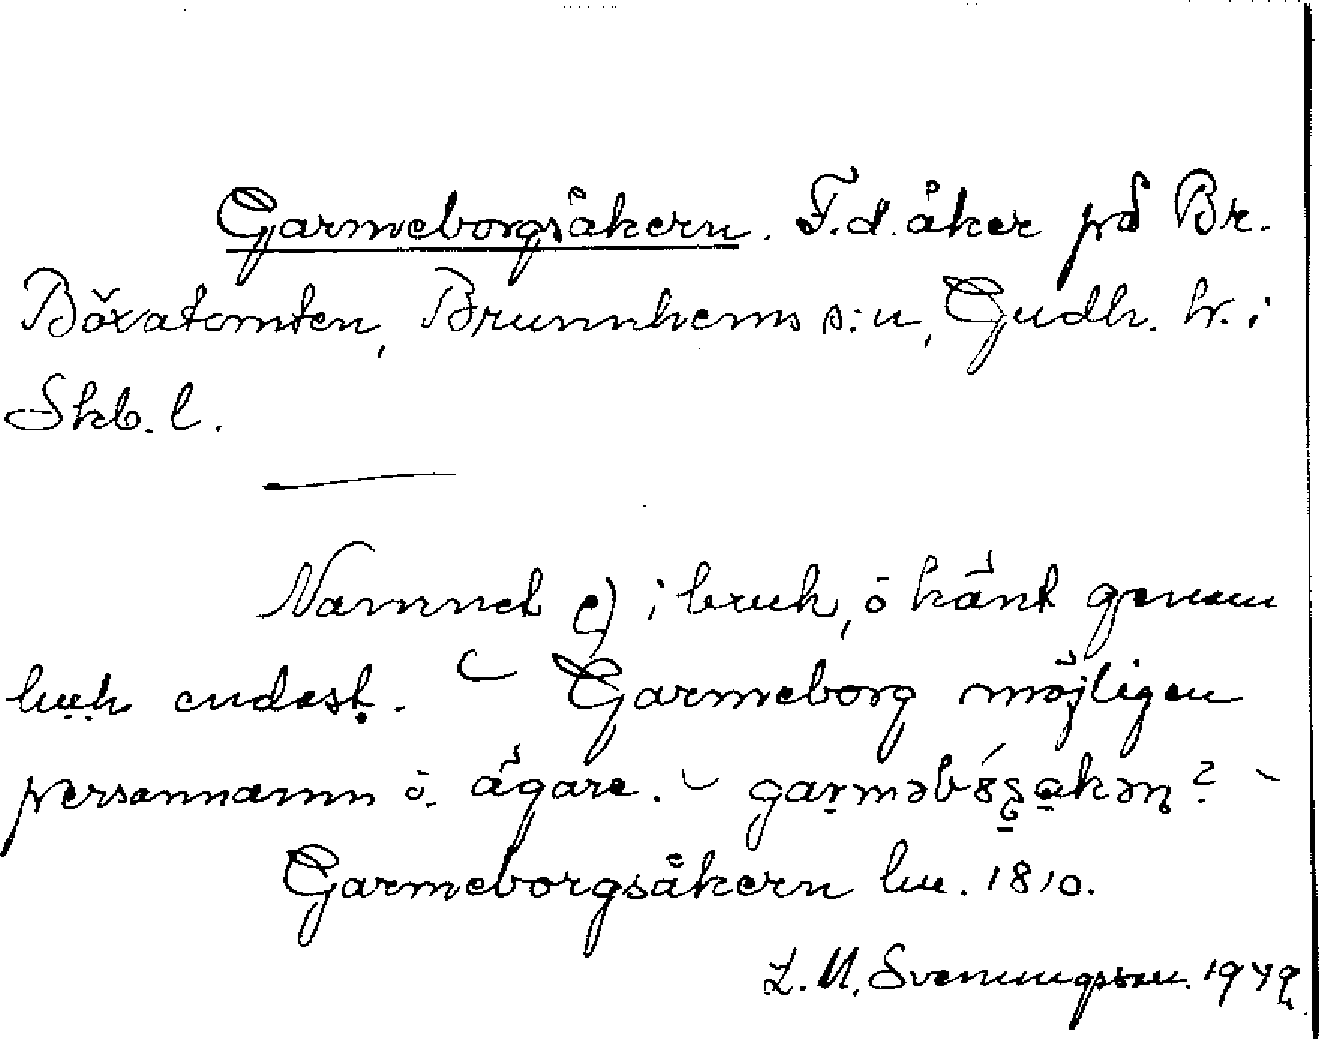 Garmeborgsåkern. F.d. åker på Br.
Böxatomten, Brunnhems s:n, Gudh. hr. i
Skb. l.
Namnet ej i bruk, o känt genom
endast. Garmeborg möjligen
personnamn o. ägare. –
Garmeborgsåkern lm. 1810.
L. M. Svenungsson. 1949